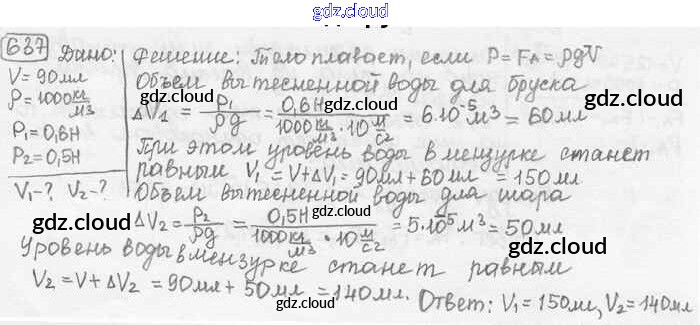 gdz.cloud
637 Дано: Решение: Тело плавает, если P = FA = ρgV
V = 90мл Объем вытесненной воды для бруска
ρ = 1000 кг/м3 ΔV1 = P1/ρg = 0,6Н/(1000 кг/м3 · 10 м/с2) = 6·10^-5 м3 = 60мл
P1 = 0,6Н При этом уровень воды в мензурке станет
P2 = 0,5Н равным V1 = V + ΔV1 = 90мл + 60мл = 150мл
V1 - ? V2 - ? Объем вытесненной воды для шара
ΔV2 = P2/ρg = 0,5Н/(1000 кг/м3 · 10 м/с2) = 5·10^-5 м3 = 50мл
Уровень воды в мензурке станет равным
V2 = V + ΔV2 = 90мл + 50мл = 140мл.
Ответ: V1 = 150мл, V2 = 140мл
gdz.cloud
gdz.cloud
gdz.cloud
gdz.cloud
gdz.cloud
gdz.cloud
gdz.cloud
gdz.cloud
gdz.cloud
gdz.cloud